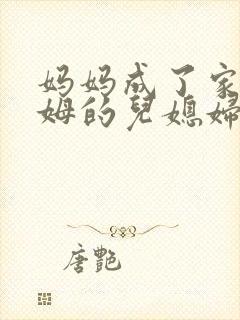 妈妈成了家
姆的兒媳婦
唐艷